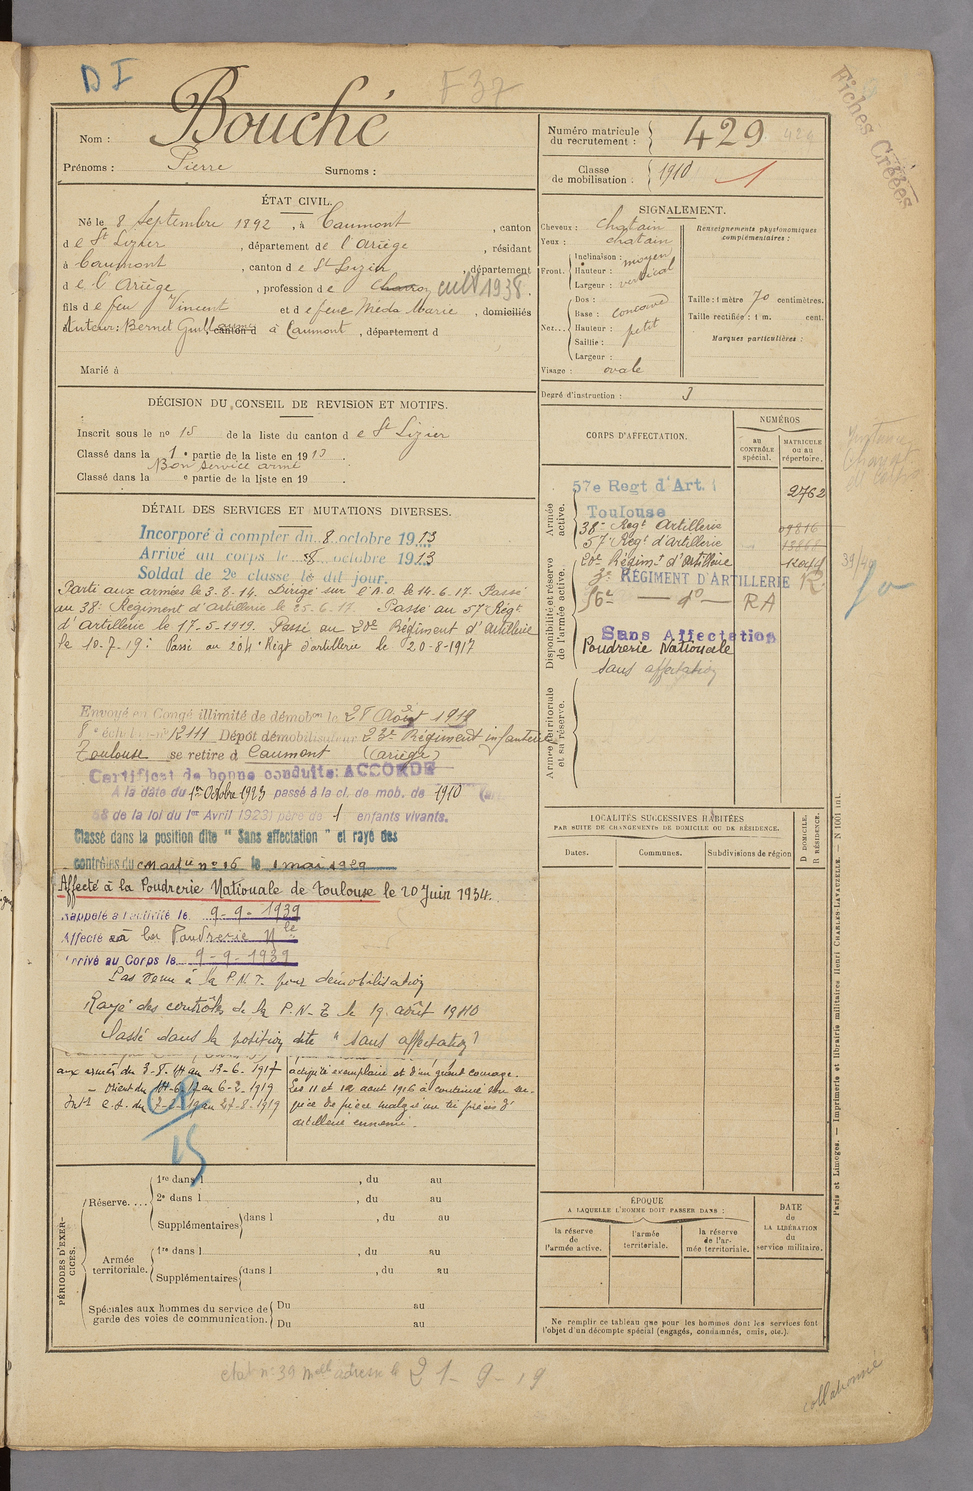 DI
F 37
Fiches Créées
Nom : Bouché
Prénoms : Pierre Surnoms :
Numéro matricule du recrutement : 429
Classe de mobilisation : 1910 1
ÉTAT CIVIL.
Né le 8 Septembre 1892, à Caumont, canton
de St Lizier, département de l'Ariège, résidant
à Caumont, canton de St Lizier, département
de l'Ariège, profession de cult 1938.
fils de feu Vincent et de feue Meda Marie, domiciliés
Tuteur : Bernet Guillaume canton d à Caumont, département d
Marié à
SIGNALEMENT.
Cheveux : chatain
Yeux : chatain
Front. Inclinaison : moyen
Hauteur : vertical
Largeur :
Nez... Dos :
Base : concave
Hauteur : petit
Saillie :
Largeur :
Visage : ovale
Renseignements physionomiques complémentaires :
Taille : 1 mètre 70 centimètres.
Taille rectifiée : 1 m. cent.
Marques particulières :
Degré d'instruction : 3
DÉCISION DU CONSEIL DE REVISION ET MOTIFS.
Inscrit sous le no 15 de la liste du canton de St Lizier
Classé dans la 1e partie de la liste en 1913.
Bon service armé
Classé dans la e partie de la liste en 19 .
DÉTAIL DES SERVICES ET MUTATIONS DIVERSES.
Incorporé à compter du 8 octobre 1913
Arrivé au corps le 8 octobre 1913
Soldat de 2e classe le dit jour.
Parti aux armées le 3-8-14. Dirigé sur l'A.O. le 14-6-17. Passé
au 38e Régiment d'artillerie le 25-6-17. Passé au 57e Régt
d'Artillerie le 17-5-1919. Passé au 20e Régiment d'Artillerie
le 10-7-19 : Passé au 204e Régt d'artillerie le 20-8-1917
Envoyé en Congé illimité de démobon le 28 Août 1919
8e éch no 12111 Dépôt démobilisateur 23e Régiment infanterie
Toulouse se retire à Caumont (Ariège)
Certificat de bonne conduite: ACCORDÉ
A la date du 1er Octobre 1923 passé à la cl. de mob. de 1910 (art.
58 de la loi du 1er Avril 1923) père de 1 enfants vivants.
Classé dans la position dite " Sans affectation " et rayé des
contrôles du Mart no 16 le 1 mai 1929
Affecté à la Poudrerie Nationale de Toulouse le 20 Juin 1934.
Rappelé à l'activité le 9-9-1939
Affecté à la Poudrerie Nle
Arrivé au Corps le 9-9-1939
Pas venu à la P.N.T. pour démobilisation
Rayé des contrôles de la P.N.T. le 19 août 1940
Classé dans la position dite "sans affectation"
aux armées du 3-8-14 au 13-6-1917
- orient du 14-6-17 au 6-2-1919
Intr C.S. du 7-2-19 au 27-8-1919
15
activité exemplaire et d'un grand courage.
Les 11 et 12 aout 1916 a continué son ser-
vice de pièce malgré un tir précis d'
artillerie ennemi.
CORPS D'AFFECTATION.
NUMÉROS
AU CONTRÔLE spécial.
MATRICULE OU AU répertoire.
Armée active.
57e Regt d'Art. 2762
Toulouse
38e Regt Artillerie 09816
57e Regt d'artillerie
20e Régimt d'Artillerie
Disponibilité et réserve de l'armée active.
3e RÉGIMENT D'ARTILLERIE R
56e — do — RA
Sans Affectation
Poudrerie Nationale
sans affectation
Armée territoriale et sa réserve.
39/40
LOCALITÉS SUCCESSIVES HABITÉES
PAR SUITE DE CHANGEMENTS DE DOMICILE OU DE RÉSIDENCE.
Dates. Communes. Subdivisions de région
D DOMICILE. R RÉSIDENCE.
PÉRIODES D'EXERCICES.
Réserve.... 1re dans l , du au
2e dans l , du au
Supplémentaires dans l , du au
Armée territoriale. 1re dans l , du au
Supplémentaires dans l , du au
Spéciales aux hommes du service de garde des voies de communication. Du au
Du au
ÉPOQUE
A LAQUELLE L'HOMME DOIT PASSER DANS :
la réserve de l'armée active.
l'armée territoriale.
la réserve de l'armée territoriale.
DATE de LA LIBÉRATION du service militaire.
Ne remplir ce tableau que pour les hommes dont les services font
l'objet d'un décompte spécial (engagés, condamnés, omis, etc.).
Paris et Limoges. — Imprimerie et librairie militaires Henri CHARLES-LAVAUZELLE. — N 1001 int.
etat no 39 adressé le 21-9-19
collationné